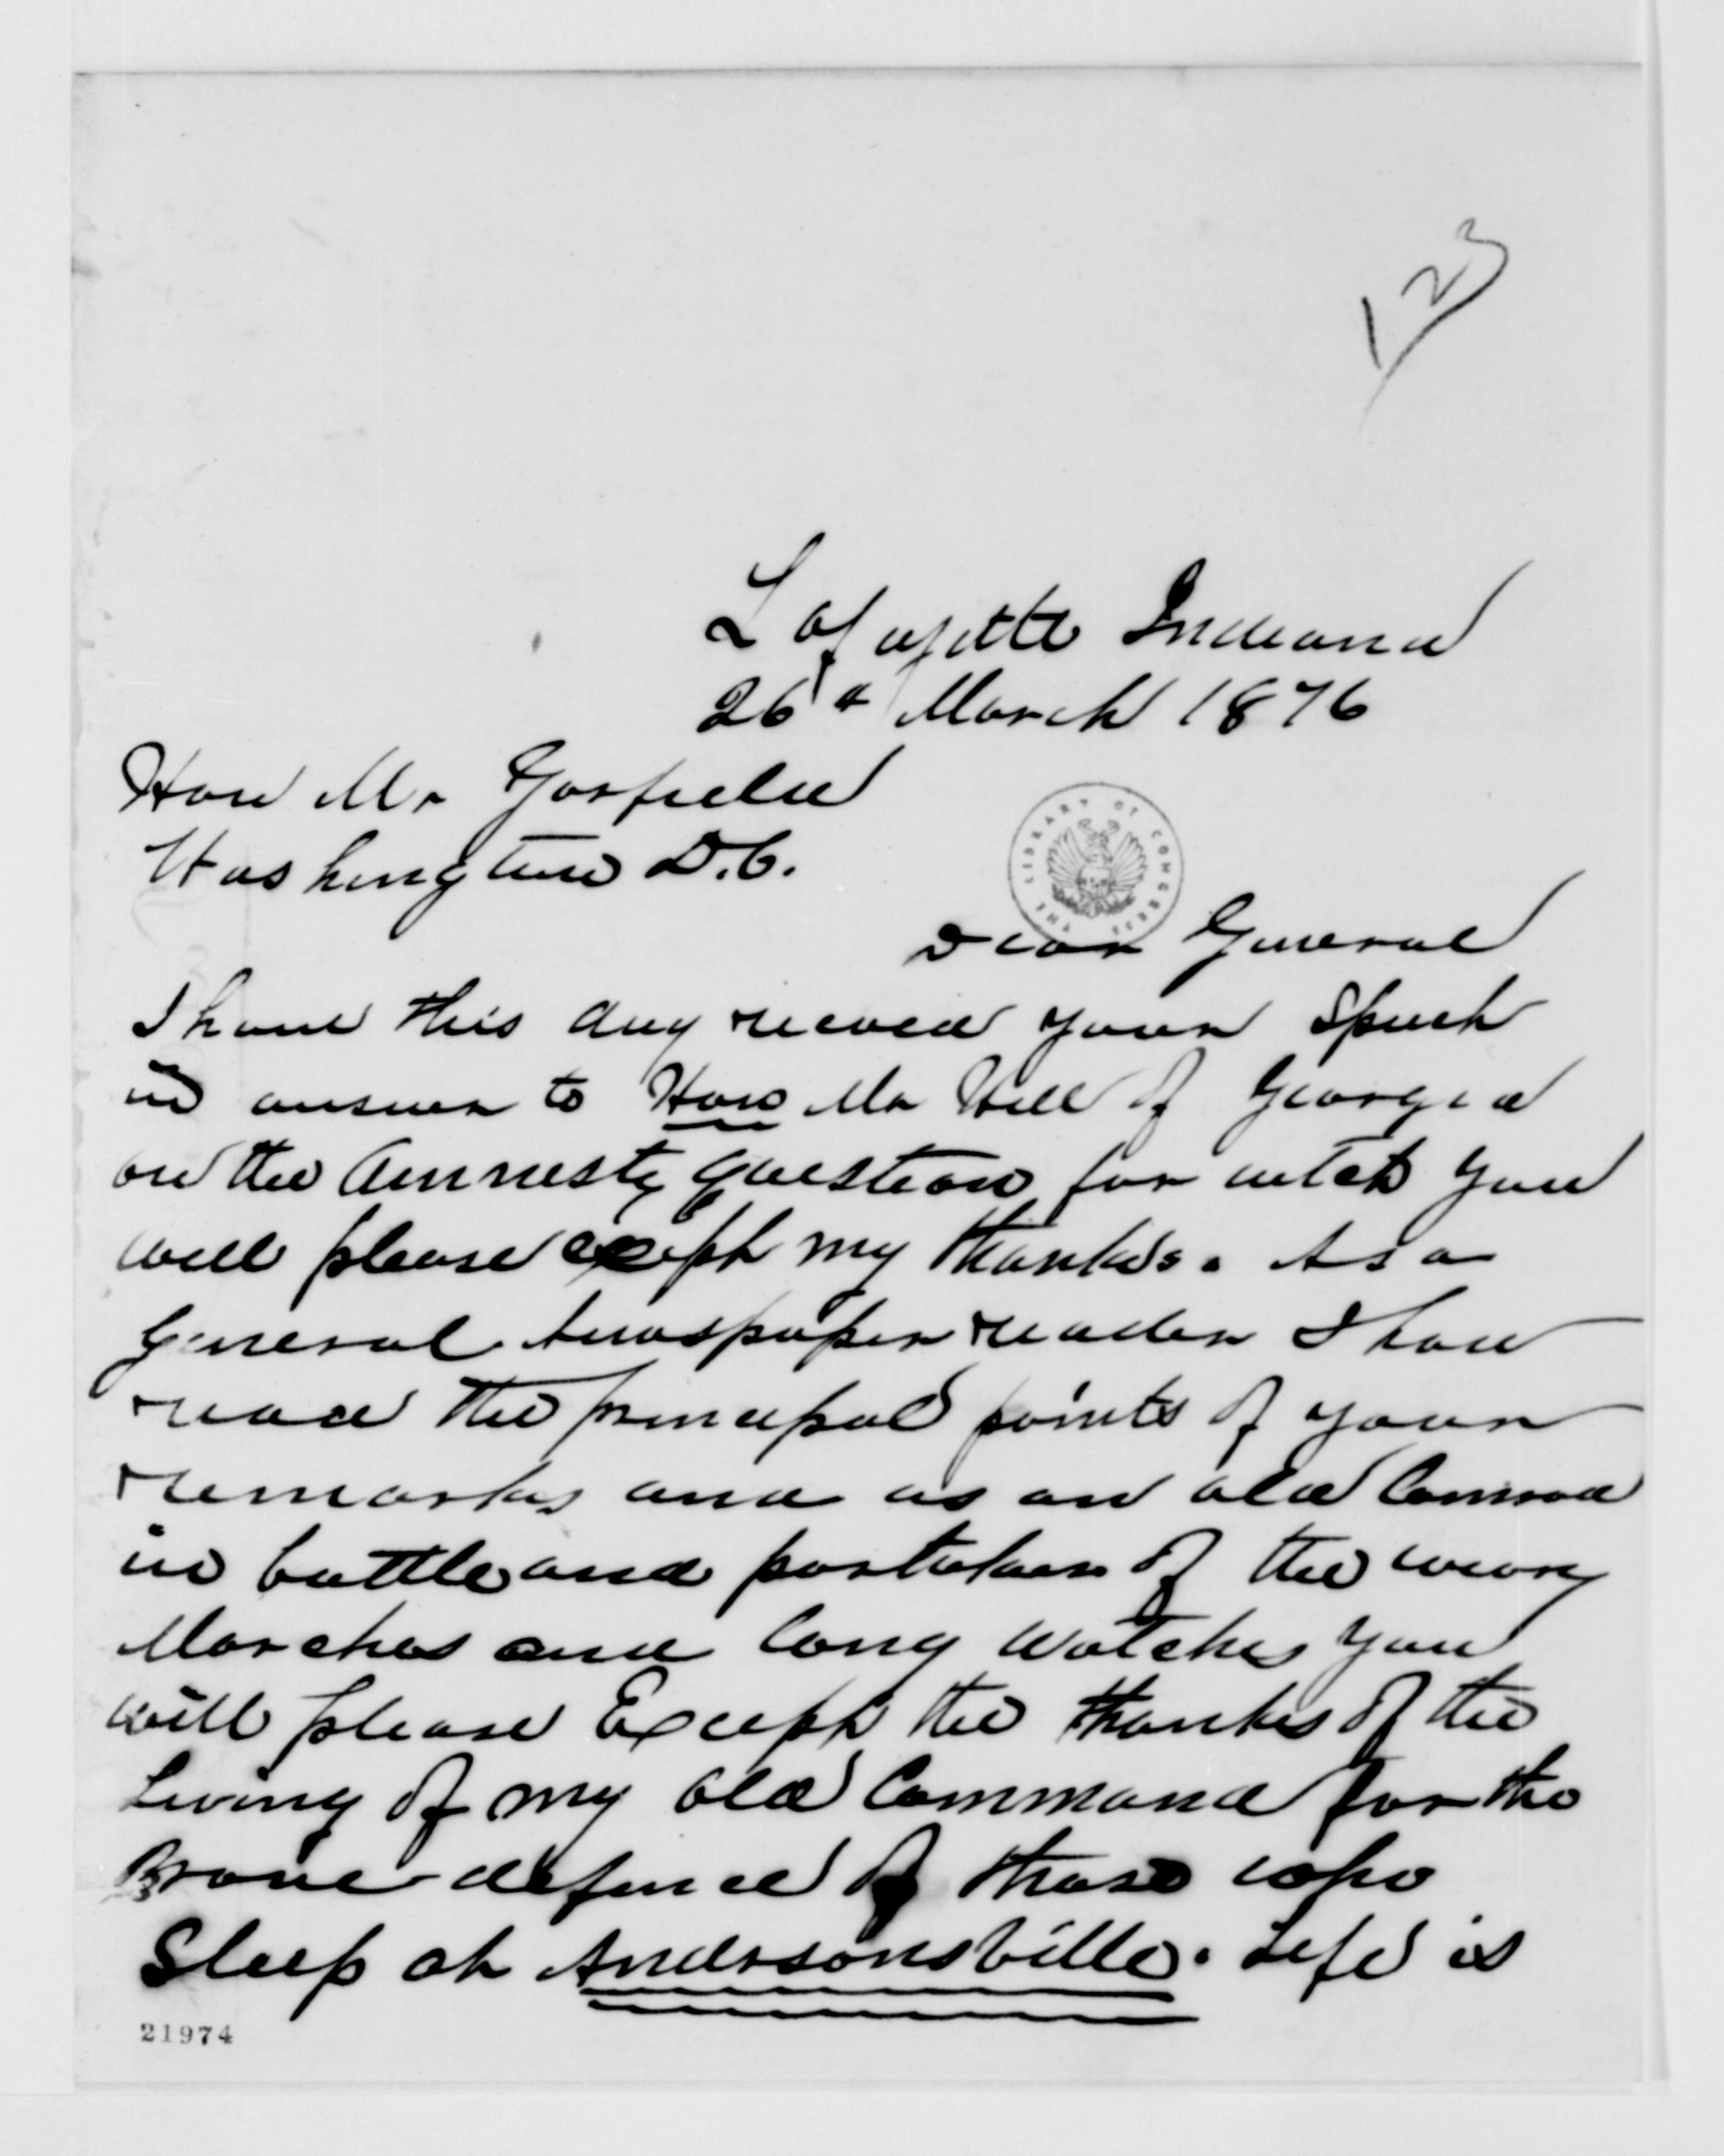 123
Lafayette Indiana
26th March 1876
Hon Mr Garfield
Washington D.C.
THE LIBRARY OF CONGRESS
Dear General
I have this day recved your Speech
in answer to Hon Mr Hill of Georgia
on the Amnesty question for witch you
will please except my thanks. As a
General Newspaper reader I have
read the principal points of your
remarks and as an old Comrad
in battle and partaker of the weary
Marches and long watches you
will please Except the thanks of the
Living of my old Command for the
Brave defence of those who
Sleep at Andersonsville. Life is
21974